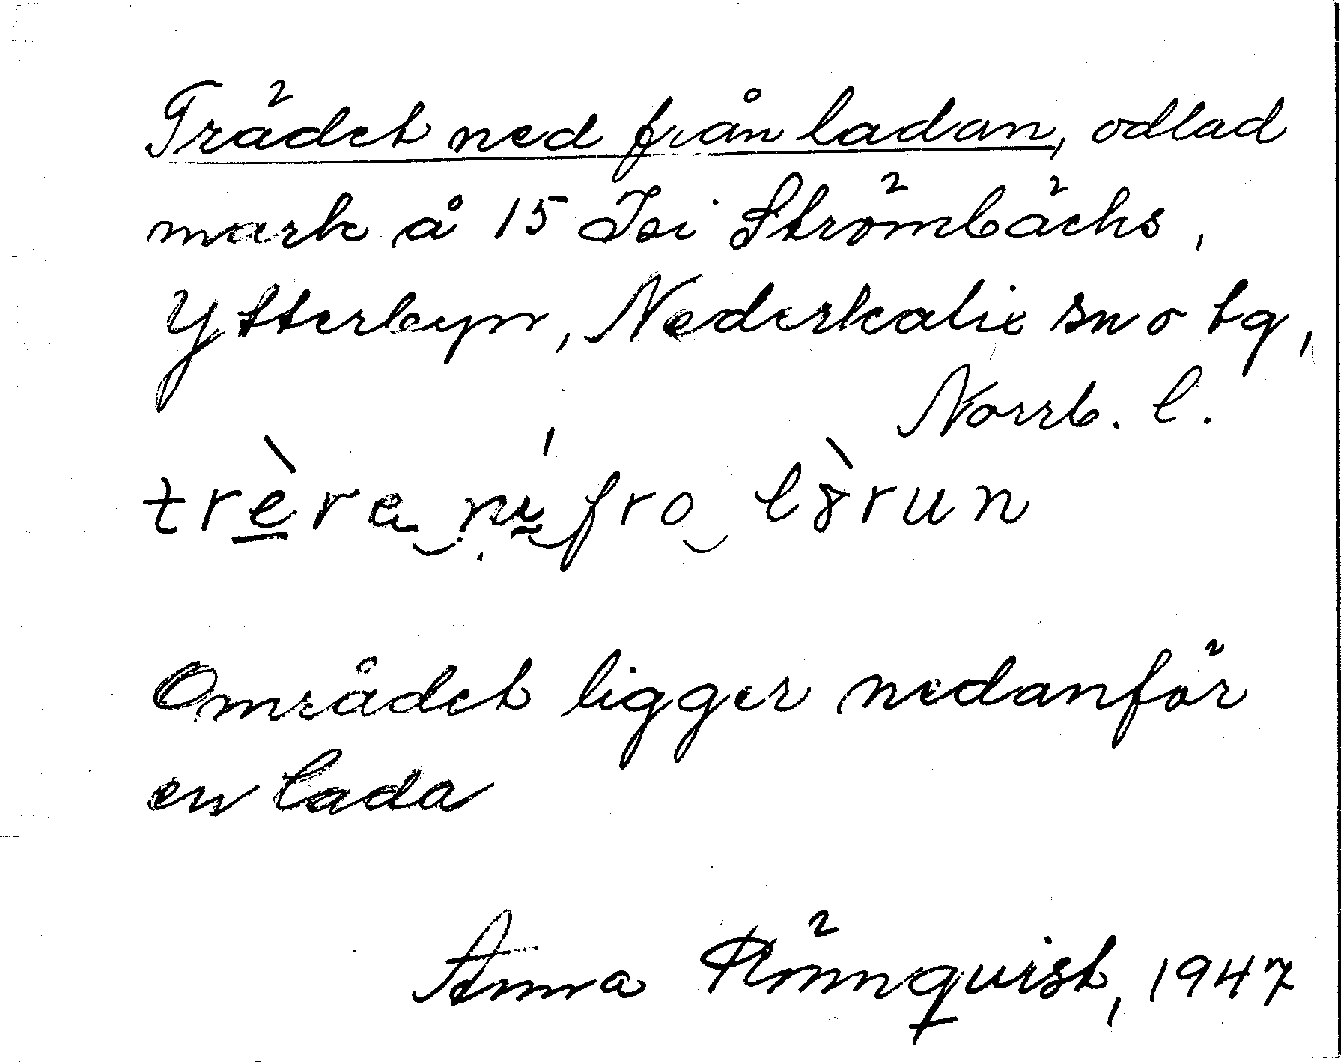 Trädet ned från ladan, odlad
mark å 15 Isi Strömbäcks,
Ytterbyn, Nederkalix sn o tg,
Norrb. l.
trère ní fro lòrun
Området ligger nedanför
en lada
Anna Rönnquist, 1947